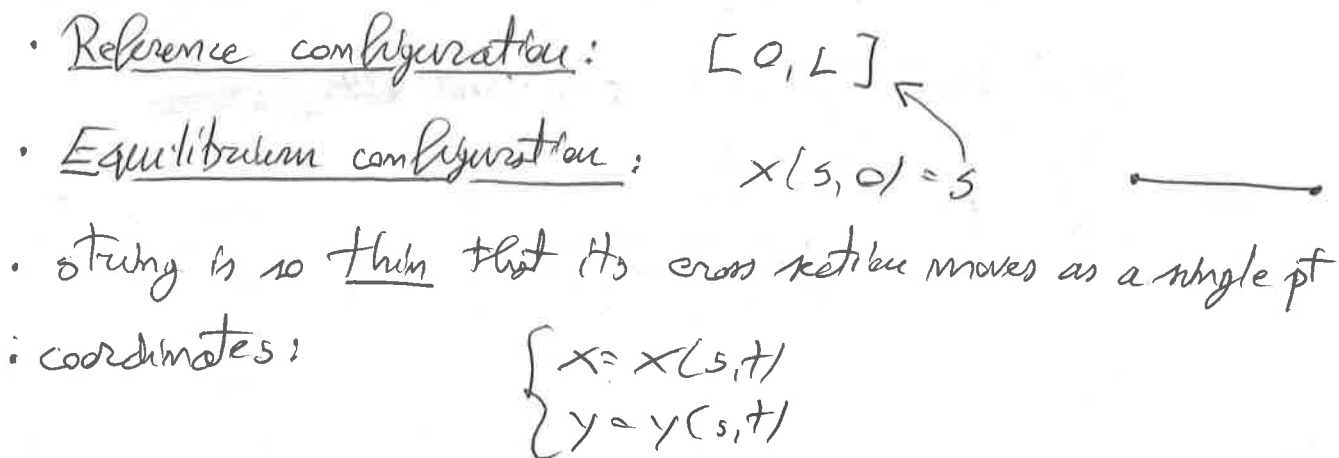 · Reference configuration: [0, L]
· Equilibrium configuration: x(s,0) = s
· string is so thin that its cross section moves as a single pt
: coordinates: { x = x(s,t)
y = y(s,t)